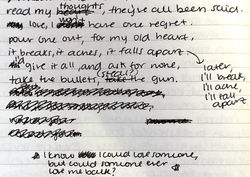 thoughts,
read my they've all been said.
won't
love, I have one regret.
pour one out, for my old heart,
it breaks, it aches, it falls apart
give it all, and ask for none,
(steal?)
take the bullets, take the gun.
later,
I'll break,
I'll ache,
I'll fall
apart
I know I could love someone,
but could someone ever
love me back?